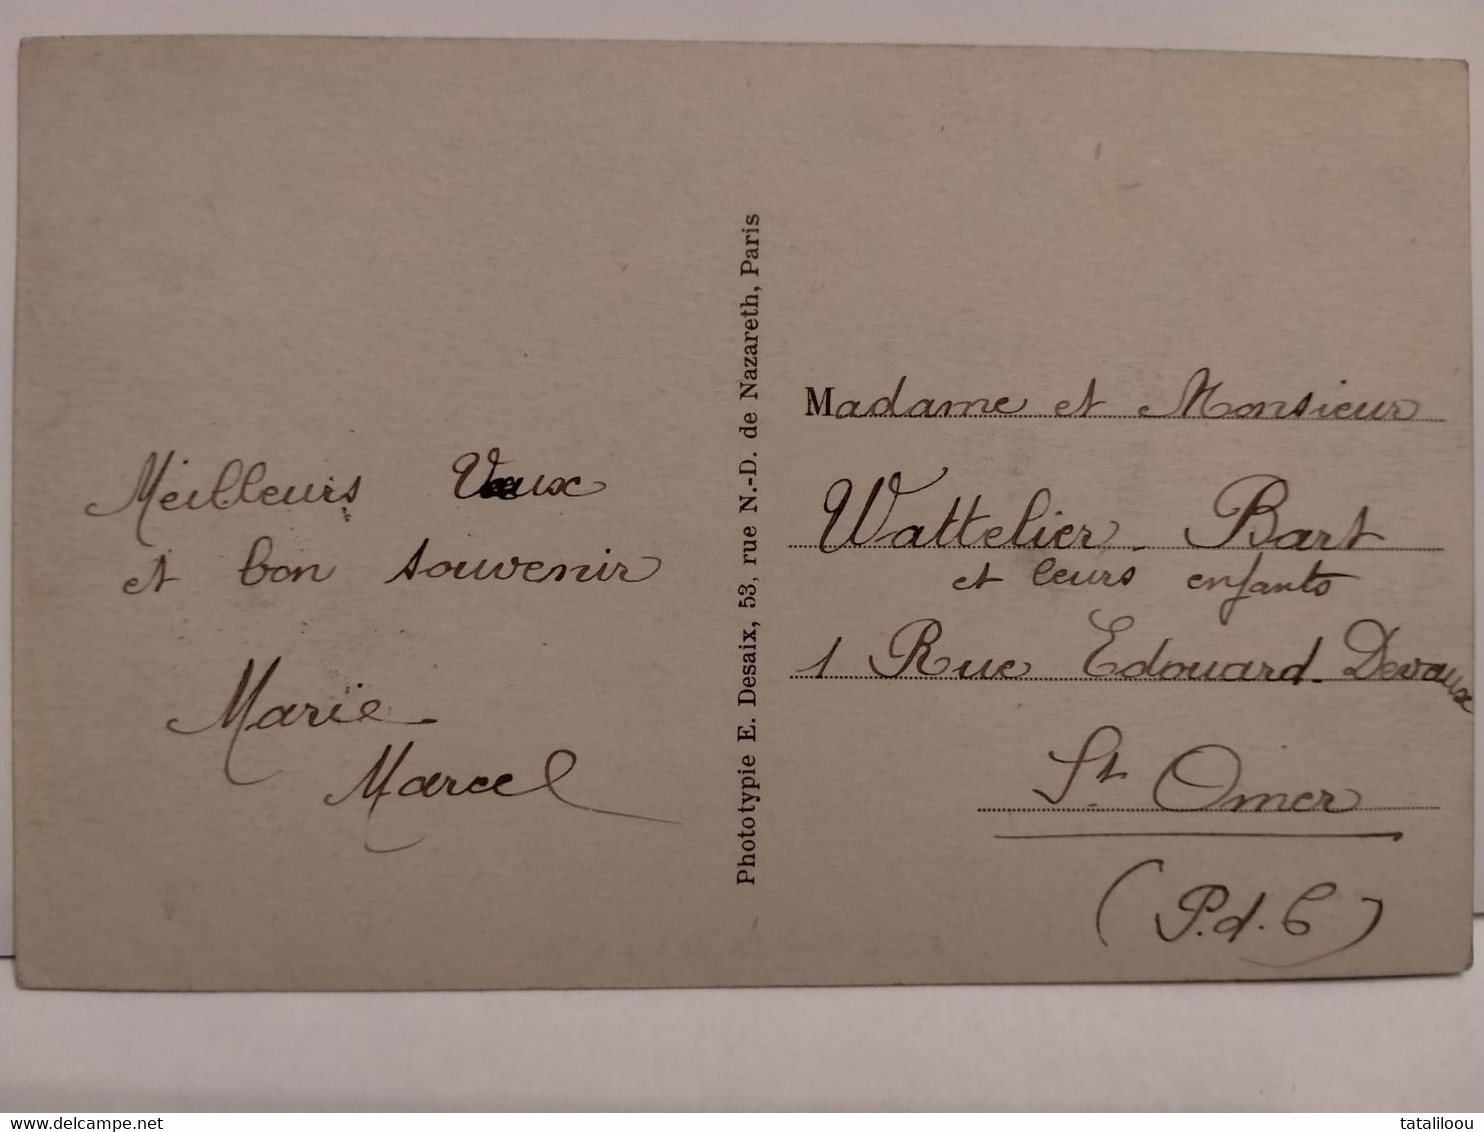 Meilleurs Vœux
et bon souvenir
Marie
Marcel
Phototypie E. Desaix, 53, rue N.-D. de Nazareth, Paris
Madame et Monsieur
Wattelier - Bart
et leurs enfants
1 Rue Edouard Devaux
St. Omer
(P.d.C)
www.delcampe.net
tataliloou